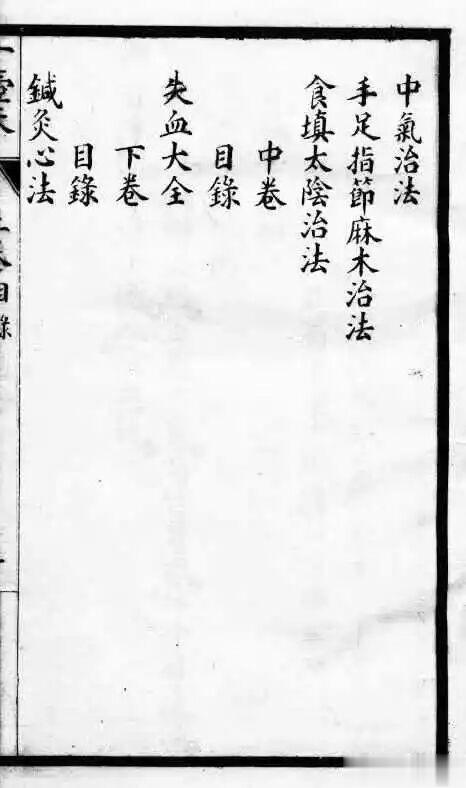 中氣治法
手足指節麻木治法
食填太陰治法
中卷
目錄
失血大全
下卷
目錄
鍼灸心法
目錄